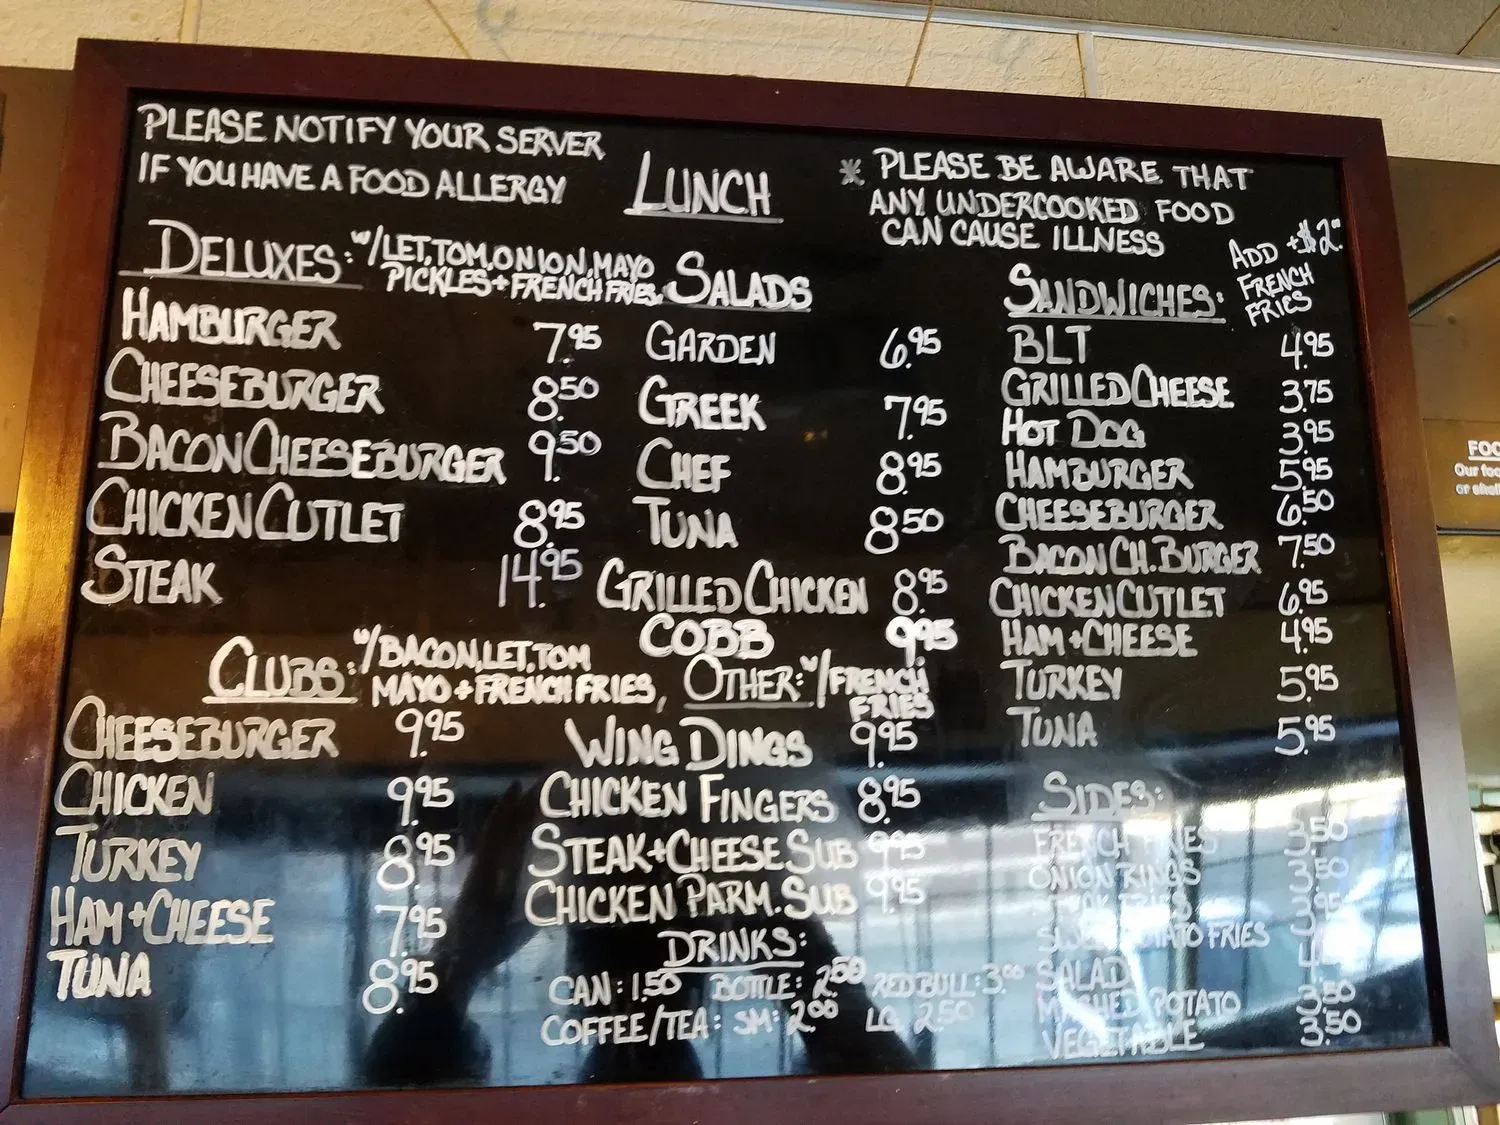 PLEASE NOTIFY YOUR SERVER
IF YOU HAVE A FOOD ALLERGY
LUNCH
* PLEASE BE AWARE THAT
ANY UNDERCOOKED FOOD
CAN CAUSE ILLNESS
DELUXES: W/LET, TOM, ONION, MAYO
PICKLES + FRENCH FRIES
HAMBURGER 7.95
CHEESEBURGER 8.50
BACON CHEESEBURGER 9.50
CHICKEN CUTLET 8.95
STEAK 14.95
SALADS
GARDEN 6.95
GREEK 7.95
CHEF 8.95
TUNA 8.50
GRILLED CHICKEN 8.95
COBB 9.95
SANDWICHES:
ADD +$2.00
FRENCH
FRIES
BLT 4.95
GRILLED CHEESE 3.75
HOT DOG 3.95
HAMBURGER 5.95
CHEESEBURGER 6.50
BACON CH. BURGER 7.50
CHICKEN CUTLET 6.95
HAM + CHEESE 4.95
TURKEY 5.95
TUNA 5.95
CLUBS: W/BACON, LET, TOM
MAYO + FRENCH FRIES,
CHEESEBURGER 9.95
CHICKEN 9.95
TURKEY 8.95
HAM + CHEESE 7.95
TUNA 8.95
OTHER: W/FRENCH
FRIES
WING DINGS 9.95
CHICKEN FINGERS 8.95
STEAK + CHEESE SUB 9.95
CHICKEN PARM. SUB 9.95
DRINKS:
CAN: 1.50 BOTTLE: 2.50 RED BULL: 3.00
COFFEE/TEA: SM: 2.00 LG 2.50
SIDES:
FRENCH FRIES 3.50
ONION RINGS 3.50
FRIES 3.95
SWEET POTATO FRIES
SALAD
MASHED POTATO 3.50
VEGETABLE 3.50
FOO
Our foo
or shel